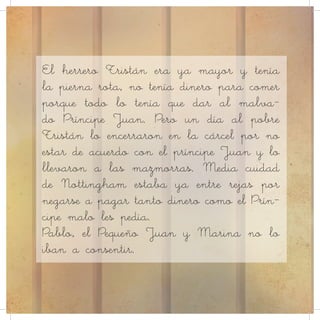 El herrero Tristán era ya mayor y tenía
la pierna rota, no tenía dinero para comer
porque todo lo tenía que dar al malva-
do Príncipe Juan. Pero un día al pobre
Tristán lo encerraron en la cárcel por no
estar de acuerdo con el príncipe Juan y lo
llevaron a las mazmorras. Media ciudad
de Nottingham estaba ya entre rejas por
negarse a pagar tanto dinero como el Prín-
cipe malo les pedía.
Pablo, el Pequeño Juan y Marina no lo
iban a consentir.